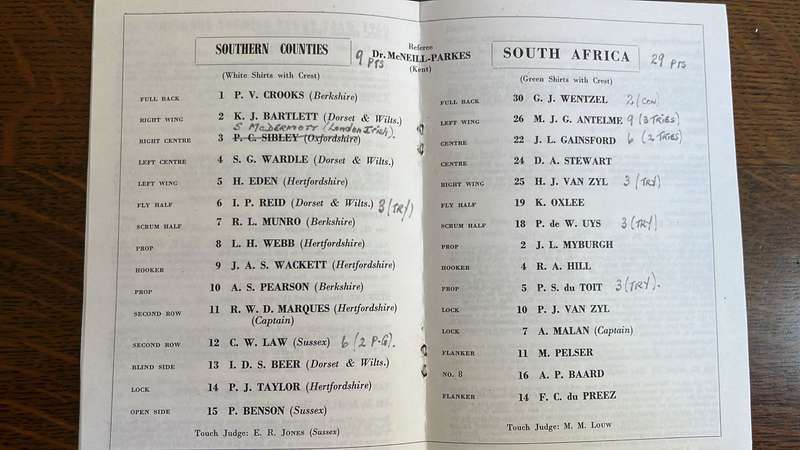 SOUTHERN COUNTIES
9 PTS
(White Shirts with Crest)
Referee
Dr. McNEILL-PARKES
(Kent)
FULL BACK 1 P. V. CROOKS (Berkshire)
RIGHT WING 2 K. J. BARTLETT (Dorset & Wilts.)
S McDERMOTT (London Irish).
RIGHT CENTRE 3 P. C. SIBLEY (Oxfordshire)
LEFT CENTRE 4 S. G. WARDLE (Dorset & Wilts.)
LEFT WING 5 H. EDEN (Hertfordshire)
FLY HALF 6 I. P. REID (Dorset & Wilts.) 3 (TRY)
SCRUM HALF 7 R. L. MUNRO (Berkshire)
PROP 8 L. H. WEBB (Hertfordshire)
HOOKER 9 J. A. S. WACKETT (Hertfordshire)
PROP 10 A. S. PEARSON (Berkshire)
SECOND ROW 11 R. W. D. MARQUES (Hertfordshire)
(Captain)
SECOND ROW 12 C. W. LAW (Sussex) 6 (2 P-G).
BLIND SIDE 13 I. D. S. BEER (Dorset & Wilts.)
LOCK 14 P. J. TAYLOR (Hertfordshire)
OPEN SIDE 15 P. BENSON (Sussex)
Touch Judge: E. R. JONES (Sussex)
SOUTH AFRICA
29 PTS
(Green Shirts with Crest)
FULL BACK 30 G. J. WENTZEL 2 (CON)
LEFT WING 26 M. J. G. ANTELME 9 (3 TRIES)
CENTRE 22 J. L. GAINSFORD 6 (2 TRIES)
CENTRE 24 D. A. STEWART
RIGHT WING 25 H. J. VAN ZYL 3 (TRY)
FLY HALF 19 K. OXLEE
SCRUM HALF 18 P. de W. UYS 3 (TRY)
PROP 2 J. L. MYBURGH
HOOKER 4 R. A. HILL
PROP 5 P. S. du TOIT 3 (TRY).
LOCK 10 P. J. VAN ZYL
LOCK 7 A. MALAN (Captain)
FLANKER 11 M. PELSER
NO. 8 16 A. P. BAARD
FLANKER 14 F. C. du PREEZ
Touch Judge: M. M. LOUW